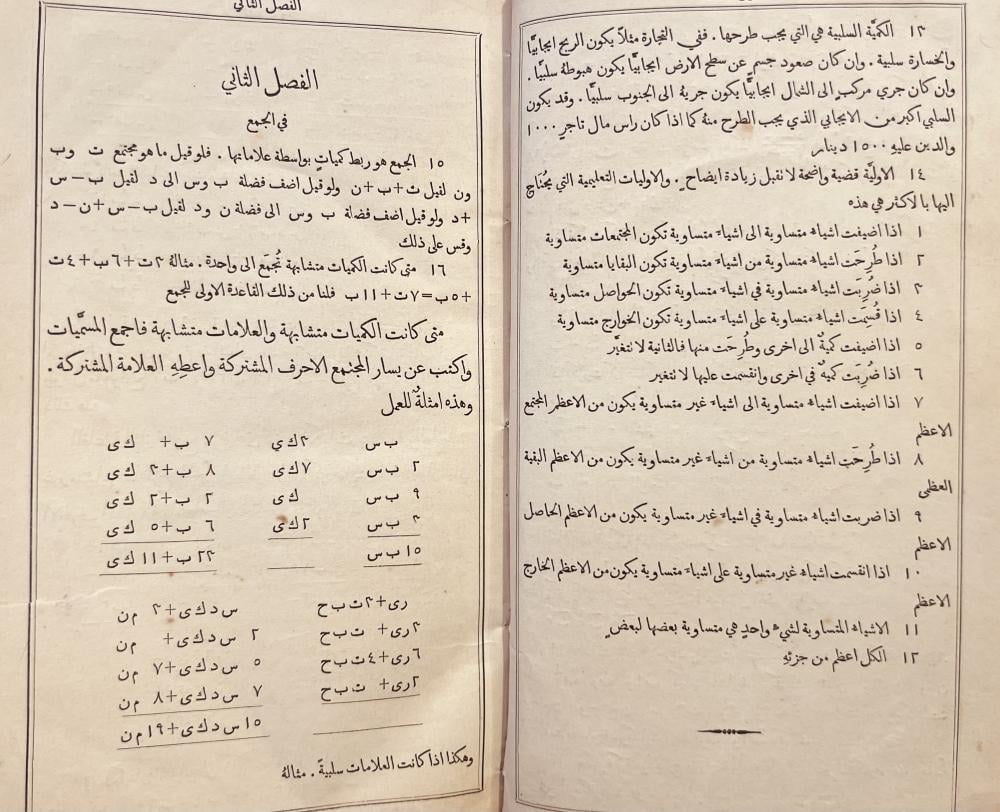 ١٣ الكميَّة السلبية هي التي يجب طرحها . ففي التجارة مثلاً يكون الربح ايجابيًّا
والخسارة سلبية . وان كان صعود جسم عن سطح الارض ايجابيًّا يكون هبوطهُ سلبيًّا .
وان كان جري مركب الى الشمال ايجابيًّا يكون جريهُ الى الجنوب سلبيًّا . وقد يكون
السلبي اكبر من الايجابي الذي يجب الطرح منهُ كما اذا كان راس مال تاجرٍ ١٠٠٠
والدين عليهِ ١٥٠٠ دينار
١٤ الاوليَّة قضية واضحة لا تقبل زيادة ايضاحٍ . والاوليات التعليمية التي يُحتَاج
اليها بالاكثر هي هذه
١ اذا اضيفت اشياء متساوية الى اشياء متساوية تكون المجتمعات متساوية
٢ اذا طُرِحَت اشياء متساوية من اشياء متساوية تكون البقايا متساوية
٣ اذا ضُرِبَت اشياء متساوية في اشياء متساوية تكون الحواصل متساوية
٤ اذا قُسِمَت اشياء متساوية على اشياء متساوية تكون الخوارج متساوية
٥ اذا اضيفت كميةٌ الى اخرى وطُرِحَت منها فالثانية لا تتغيَّر
٦ اذا ضُرِبَت كميةٌ في اخرى وانقسمت عليها لا تتغير
٧ اذا اضيفت اشياء متساوية الى اشياء غير متساوية يكون من الاعظم المجتمع
الاعظم
٨ اذا طُرِحَت اشياء متساوية من اشياء غير متساوية يكون من الاعظم البقية
العظمى
٩ اذا ضربت اشياء متساوية في اشياء غير متساوية يكون من الاعظم الحاصل
الاعظم
١٠ اذا انقسمت اشياء غير متساوية على اشياء متساوية يكون من الاعظم الخارج
الاعظم
١١ الاشياء المتساوية لشيء واحدٍ هي متساوية بعضها لبعضٍ
١٢ الكل اعظم من جزئهِ
الفصل الثاني
الفصل الثاني
في الجمع
١٥ الجمع هو ربط كميات بواسطة علاماتها . فلو قيل ما هو مجتمع ت وب
ون لقيل ت+ب+ن ولو قيل اضف فضلة ب وس الى د لقيل ب–س
+د ولو قيل اضف فضلة ب وس الى فضلة ن ود لقيل ب–س+ن–د
وقس على ذلك
١٦ متى كانت الكميات متشابهة تُجمَع الى واحدة . مثالهُ ٣ت+٦ب+٤ت
+٥ب=٧ت+١١ب فلنا من ذلك القاعدة الاولى للجمع
متى كانت الكميات متشابهة والعلامات متشابهة فاجمع المسمَّيات
واكتب عن يسار المجتمع الاحرف المشتركة واعطِهِ العلامة المشتركة .
وهذه امثلةٌ للعمل
ب س ٣ك ي ٧ ب+ ك ى
٢ ب س ٧ك ى ٨ ب+٣ ك ى
٩ ب س ك ى ٢ ب+٢ ك ى
٣ ب س ٢ك ى ٦ ب+٥ ك ى
١٥ ب س ٢٣ ب+١١ ك ى
رى+٣ت ب ح س د ك ى+٣ م ن
٣رى+ ت ب ح ٢ س د ك ى+ م ن
٦رى+٤ت ب ح ٥ س د ك ى+٧ م ن
٢رى+ ت ب ح ٧ س د ك ى+٨ م ن
١٥ س د ك ى+١٩ م ن
وهكذا اذا كانت العلامات سلبيةً . مثالهُ